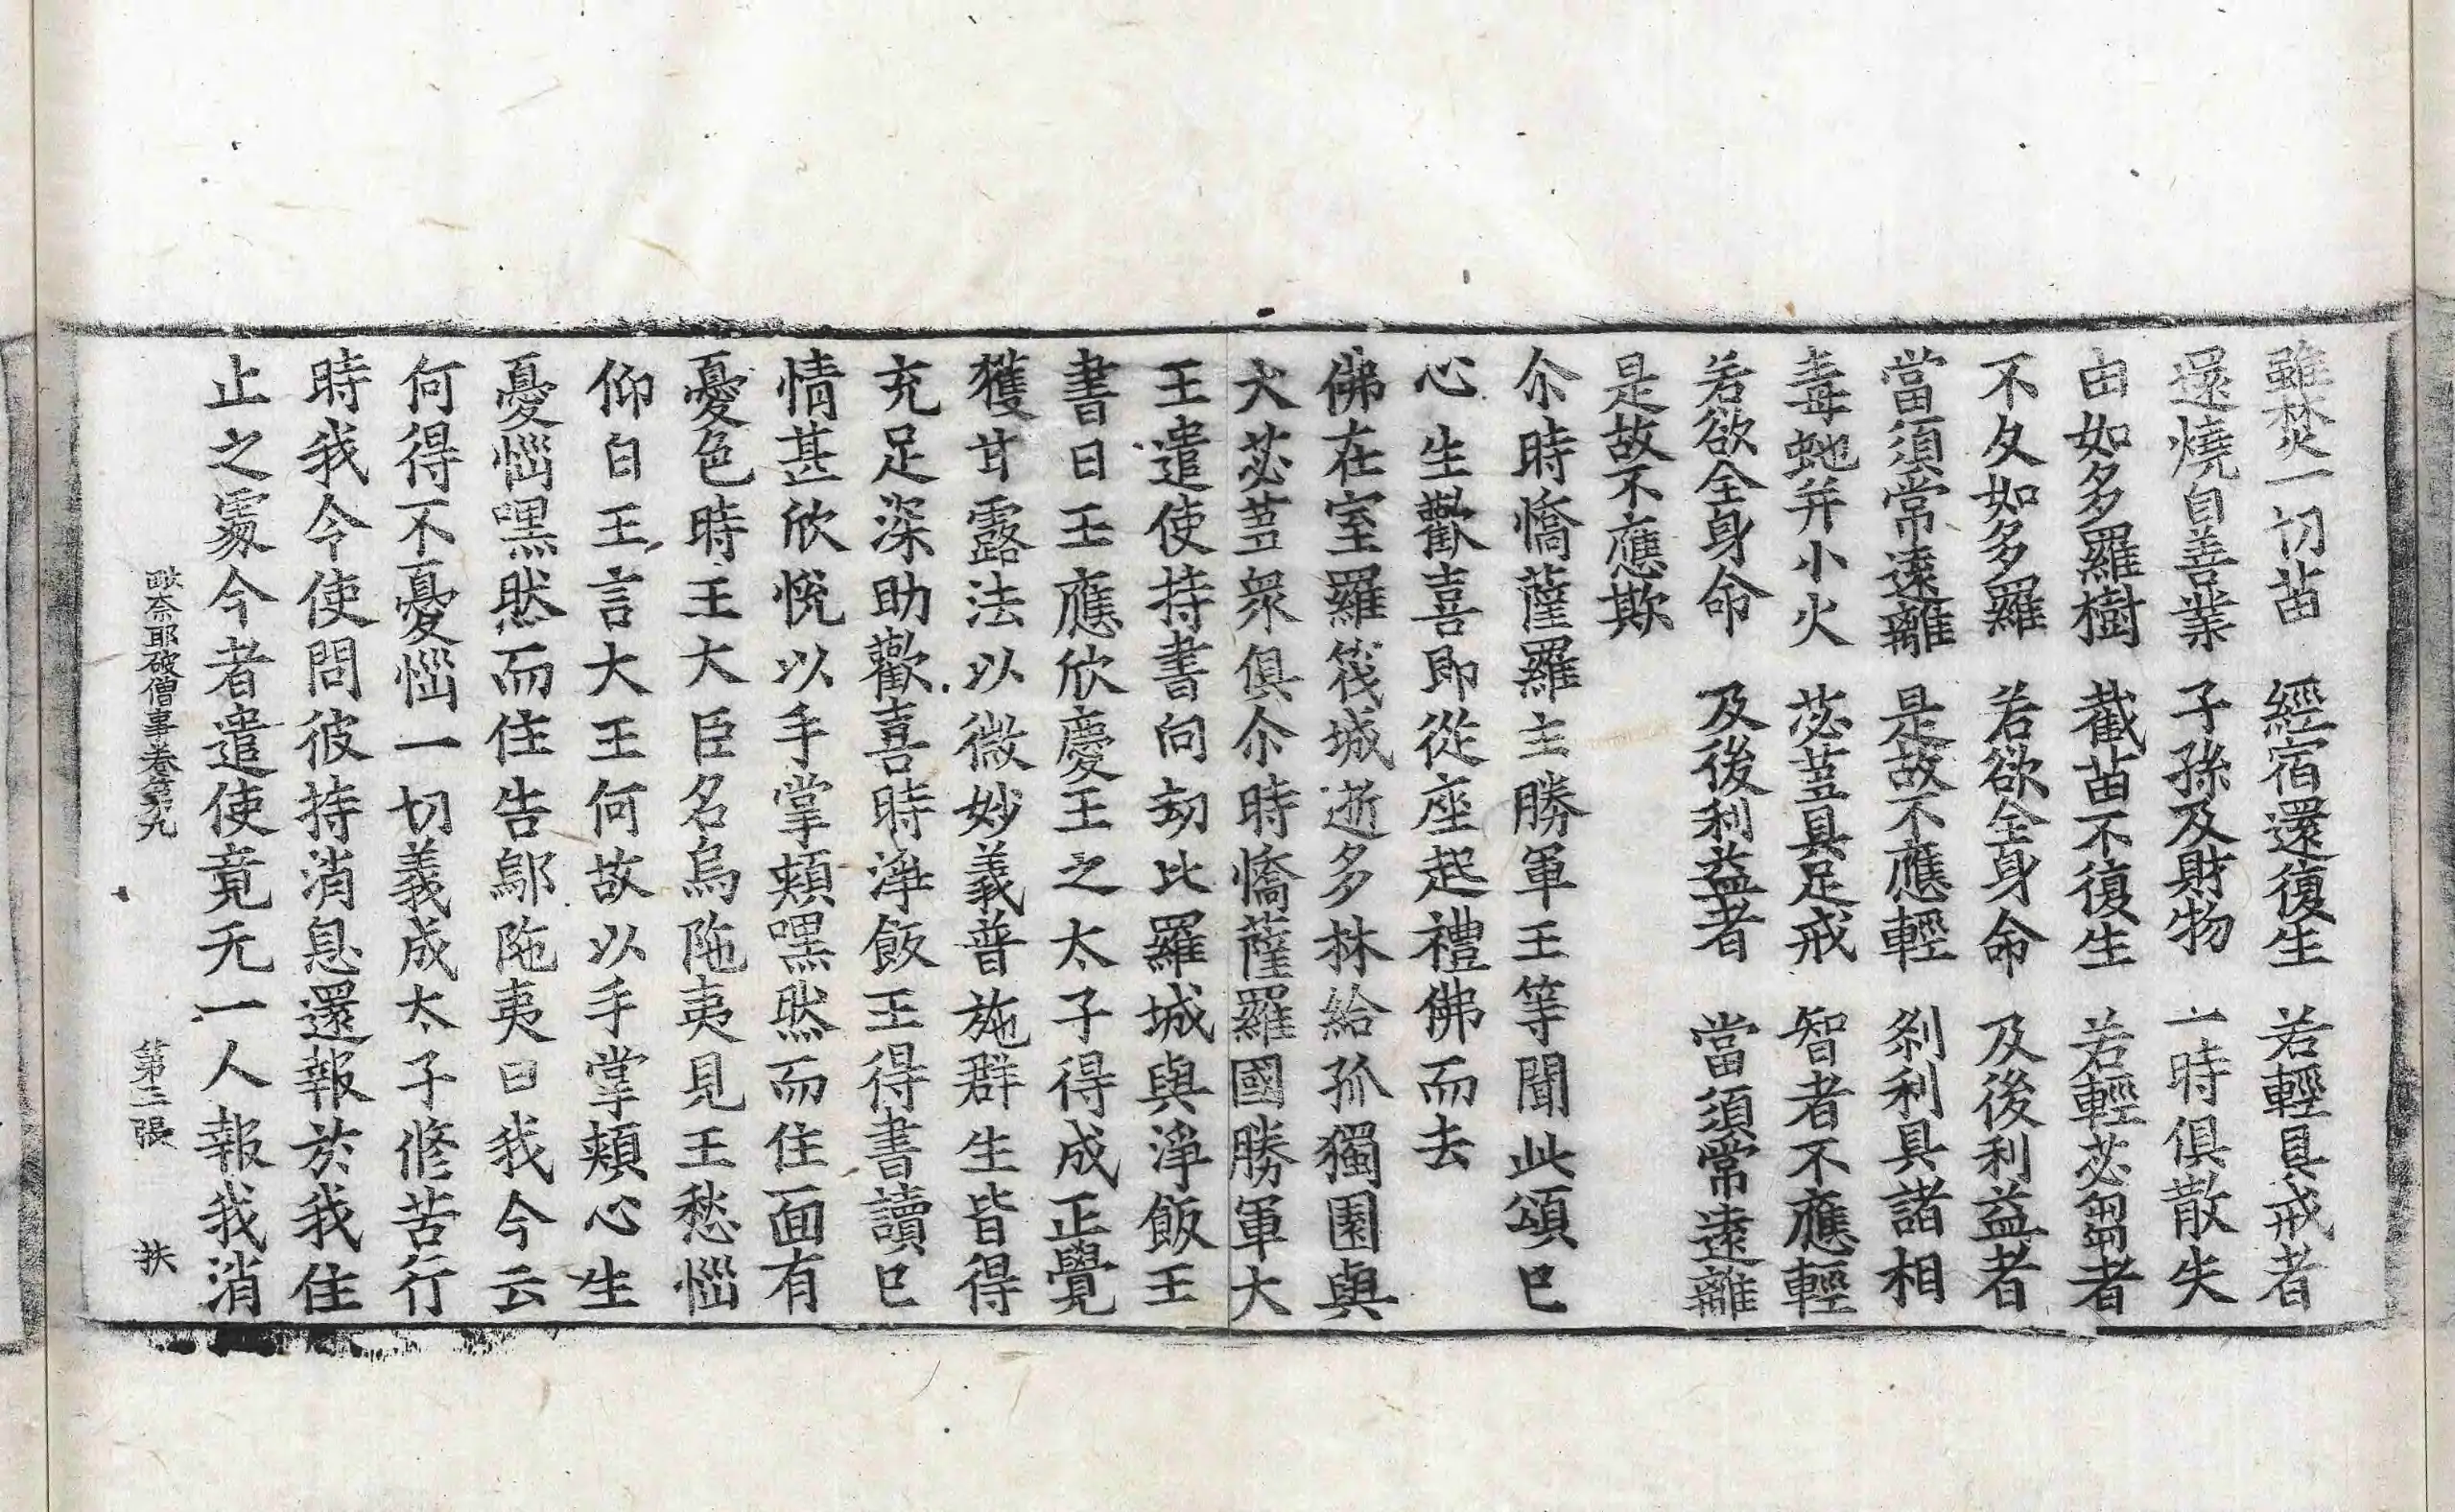 雖焚一切苗　經宿還復生　若輕具戒者
還燒自善業　子孫及財物　一時俱散失
由如多羅樹　截苗不復生　若輕苾芻者
不久如多羅　若欲全身命　及後利益者
當須常遠離　是故不應輕　剎利具諸相
毒虵并小火　苾芻具足戒　智者不應輕
若欲全身命　及後利益者　當須常遠離
是故不應欺
尒時憍薩羅主勝軍王等聞此頌已
心生歡喜即從座起禮佛而去
佛在室羅筏城逝多林給孤獨園與
大苾芻衆俱尒時憍薩羅國勝軍大
王遣使持書向劫比羅城與淨飯王
書曰王應欣慶王之太子得成正覺
獲甘露法以微妙義普施群生皆得
充足深助歡喜時淨飯王得書讀已
情甚欣悅以手掌頰嘿然而住面有
憂色時王大臣名烏陁夷見王愁惱
仰白王言大王何故以手掌頰心生
憂惱嘿然而住告鄔陁夷曰我今云
何得不憂惱一切義成太子修苦行
時我今使問彼持消息還報於我住
止之處今者遣使竟无一人報我消
毗奈耶破僧事卷第九　第三張　扶